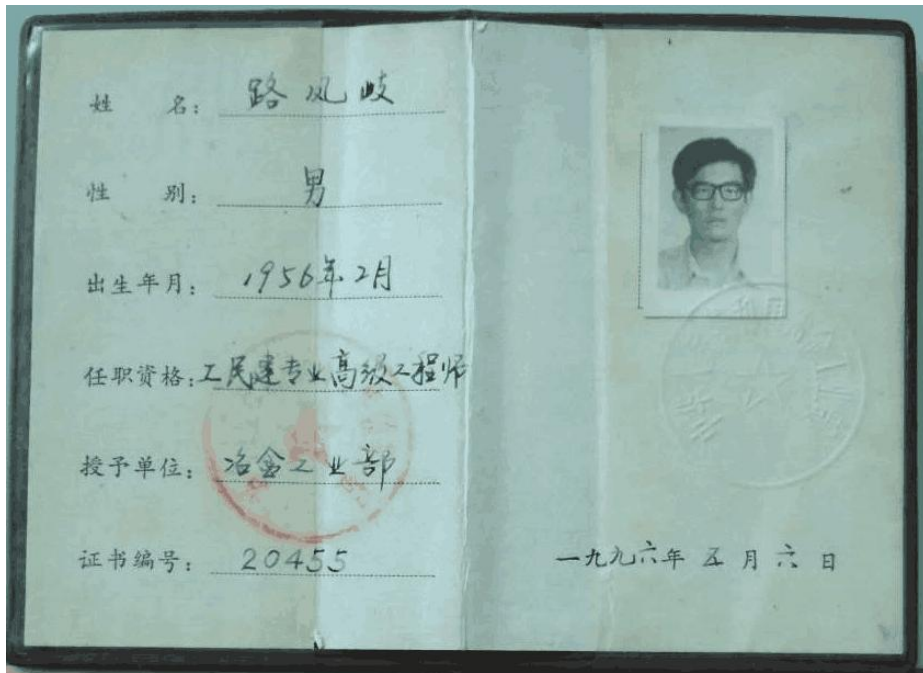 姓 名：路风岐
性 别：男
出生年月：1956年2月
任职资格：工民建专业高级工程师
授予单位：冶金工业部
证书编号：20455
一九九六年 五 月 六 日